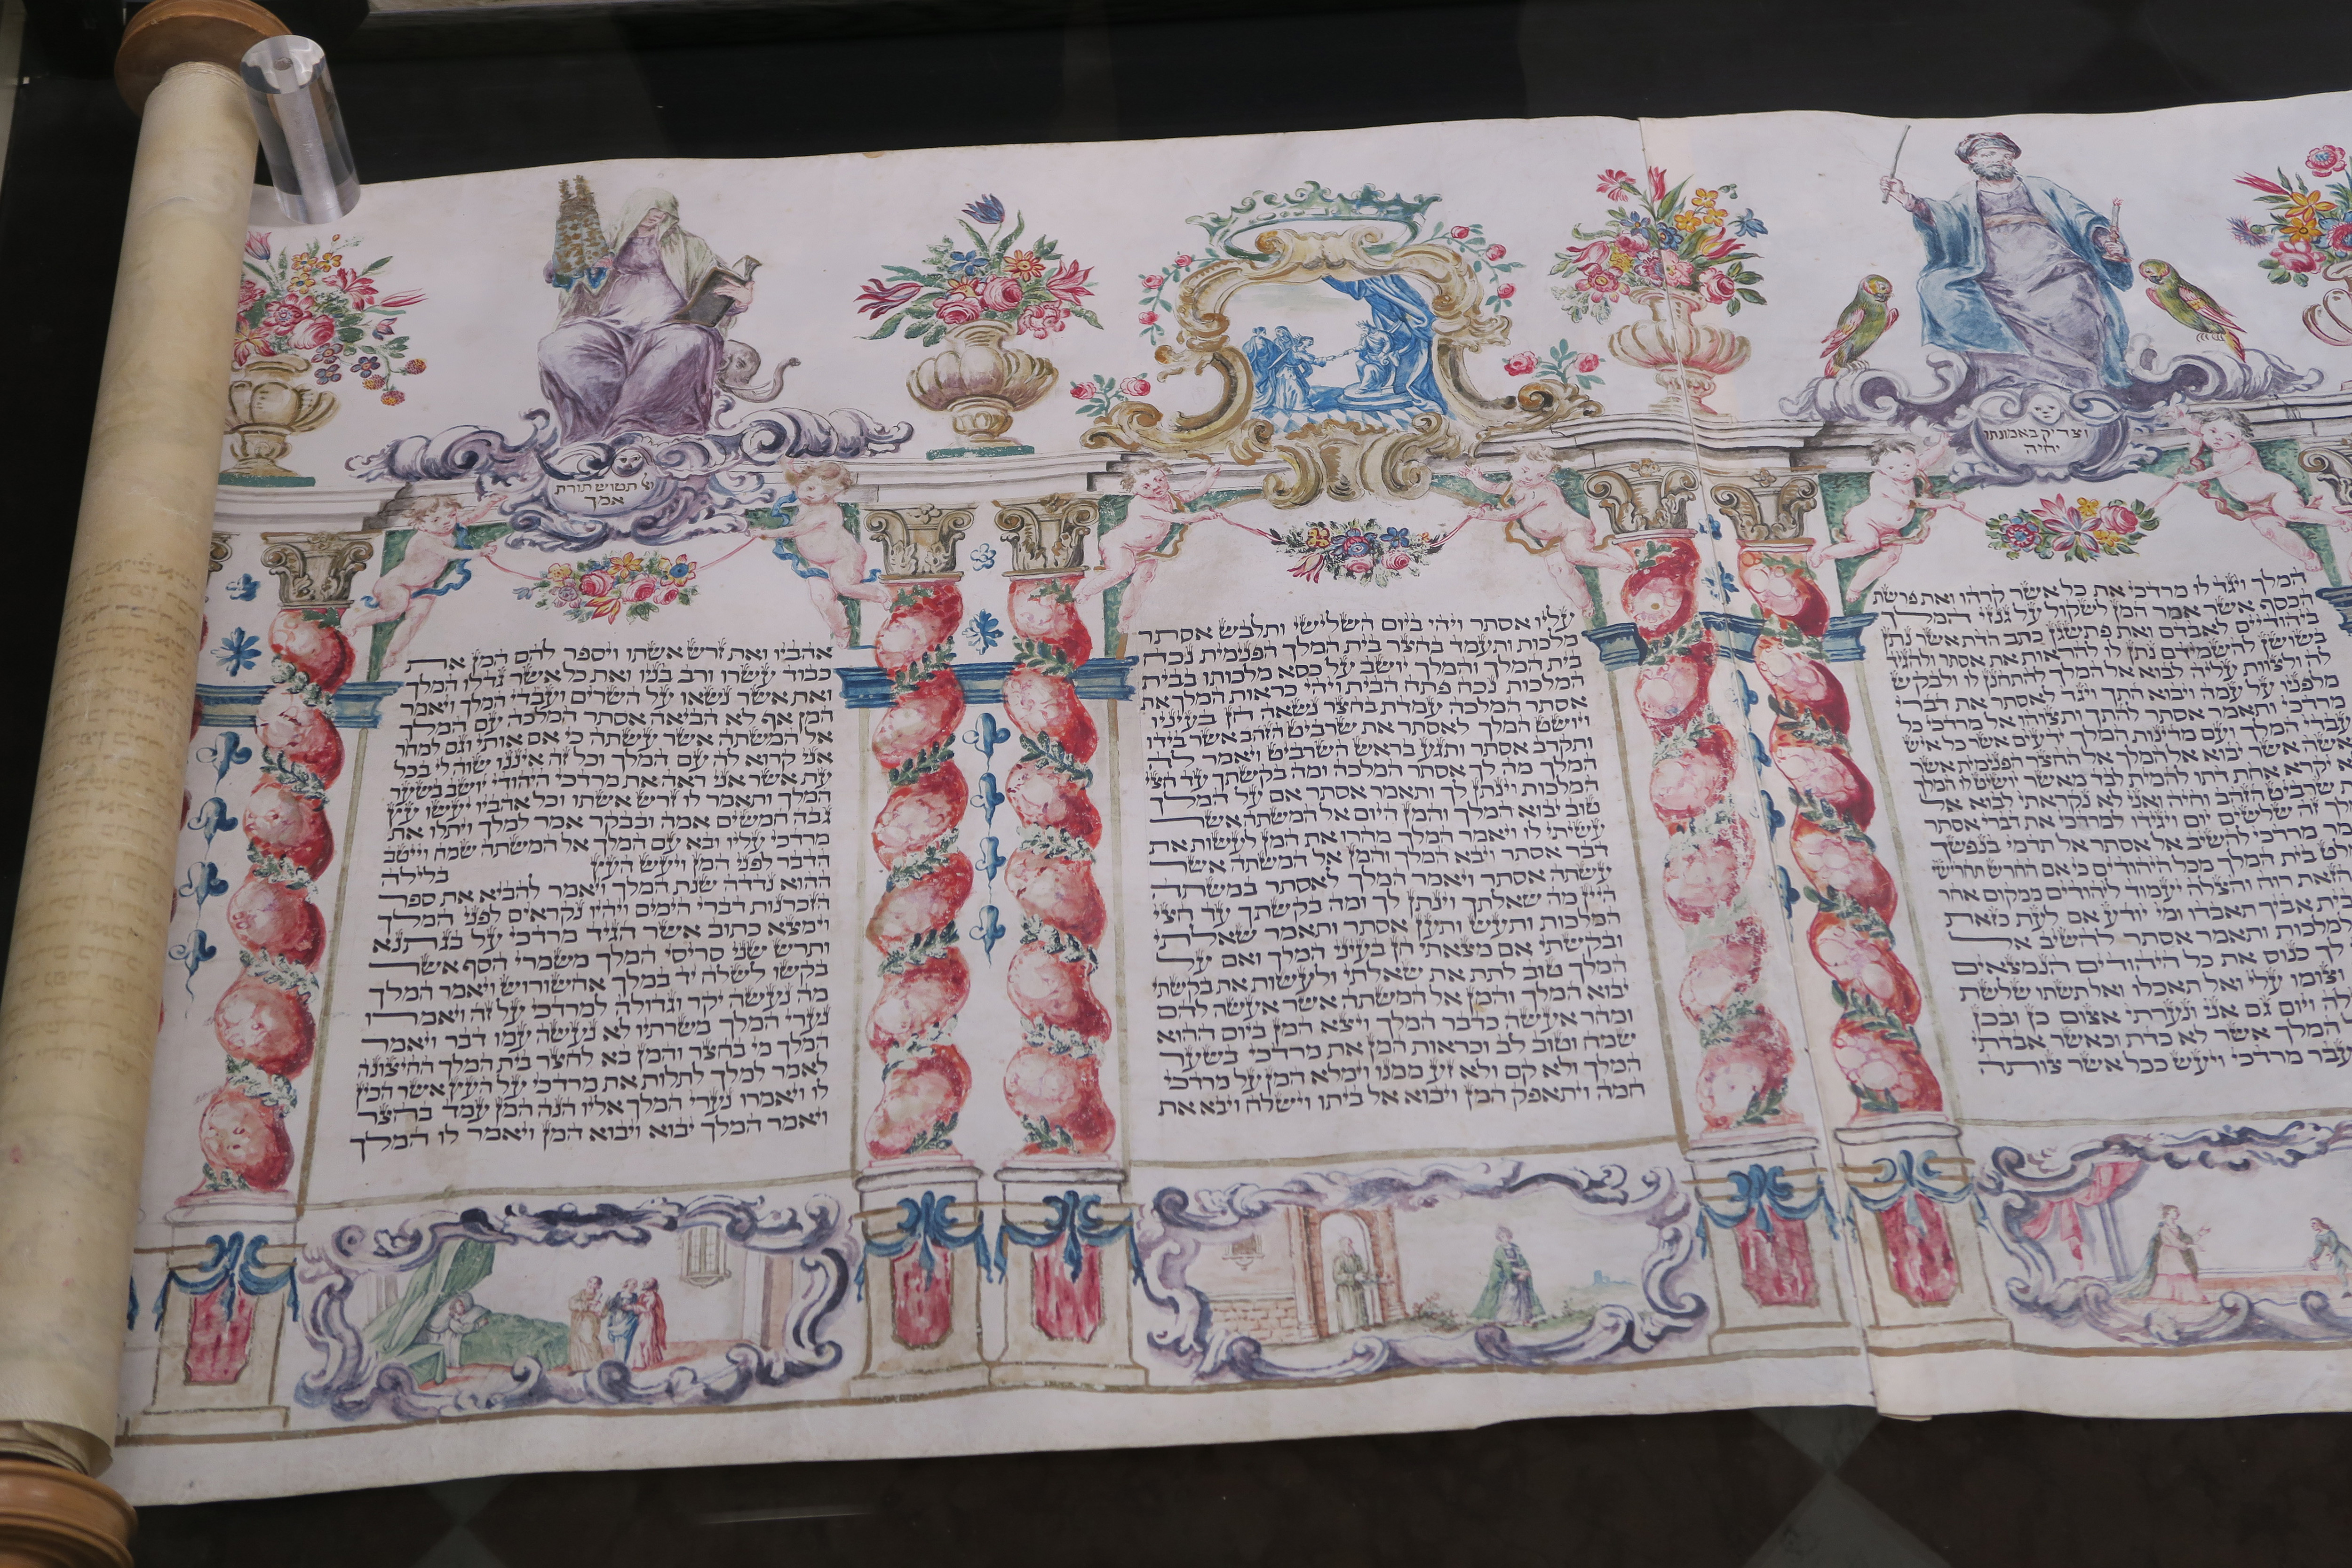 וצדיק באמונתו
יחיה
המלך ויגד לו מרדכי את כל אשר קרהו ואת פרשת
הכסף אשר אמר המן לשקול על גנזי המלך
ביהודיים לאבדם ואת פתשגן כתב הדת אשר נתן
בשושן להשמידם נתן לו להראות את אסתר ולהגיד
לה ולצוות עליה לבוא אל המלך להתחנן לו ולבקש
מלפניו על עמה ויבוא התך ויגד לאסתר את דברי
מרדכי ותאמר אסתר להתך ותצוהו אל מרדכי כל
עבדי המלך ועם מדינות המלך ידעים אשר כל איש
אשה אשר יבוא אל המלך אל החצר הפנימית אשר
א יקרא אחת דתו להמית לבד מאשר יושיט לו המלך
שרביט הזהב וחיה ואני לא נקראתי לבוא אל
זה שלשים יום ויגידו למרדכי את דברי אסתר
מרדכי להשיב אל אסתר אל תדמי בנפשך
בית המלך מכל היהודים כי אם החרש תחרישי
הזאת רוח והצלה יעמוד ליהודים ממקום אחר
בית אביך תאבדו ומי יודע אם לעת כזאת
למלכות ותאמר אסתר להשיב אל
לך כנוס את כל היהודים הנמצאים
וצומו עלי ואל תאכלו ואל תשתו שלשת
ויום גם אני ונערתי אצום כן ובכן
המלך אשר לא כדת וכאשר אבדתי
עבר מרדכי ויעש ככל אשר צותה
עליו אסתר ויהי ביום השלישי ותלבש אסתר
מלכות ותעמד בחצר בית המלך הפנימית נכח
בית המלך והמלך יושב על כסא מלכותו בבית
המלכות נכח פתח הבית ויהי כראות המלך את
אסתר המלכה עמדת בחצר נשאה חן בעיניו
ויושט המלך לאסתר את שרביט הזהב אשר בידו
ותקרב אסתר ותגע בראש השרביט ויאמר לה
המלך מה לך אסתר המלכה ומה בקשתך עד חצי
המלכות וינתן לך ותאמר אסתר אם על המלך
טוב יבוא המלך והמן היום אל המשתה אשר
עשיתי לו ויאמר המלך מהרו את המן לעשות את
דבר אסתר ויבא המלך והמן אל המשתה אשר
עשתה אסתר ויאמר המלך לאסתר במשתה
היין מה שאלתך וינתן לך ומה בקשתך עד חצי
המלכות ותעש ותען אסתר ותאמר שאלתי
ובקשתי אם מצאתי חן בעיני המלך ואם על
המלך טוב לתת את שאלתי ולעשות את בקשתי
יבוא המלך והמן אל המשתה אשר אעשה להם
ומחר אעשה כדבר המלך ויצא המן ביום ההוא
שמח וטוב לב וכראות המן את מרדכי בשער
המלך ולא קם ולא זע ממנו וימלא המן על מרדכי
חמה ויתאפק המן ויבוא אל ביתו וישלח ויבא את
ואל תטוש תורת
אמך
אהביו ואת זרש אשתו ויספר להם המן את
כבוד עשרו ורב בניו ואת כל אשר גדלו המלך
ואת אשר נשאו על השרים ועבדי המלך ויאמר
המן אף לא הביאה אסתר המלכה עם המלך
אל המשתה אשר עשתה כי אם אותי וגם למחר
אני קרוא לה עם המלך וכל זה איננו שוה לי בכל
עת אשר אני ראה את מרדכי היהודי יושב בשער
המלך ותאמר לו זרש אשתו וכל אהביו יעשו עץ
גבה חמשים אמה ובבקר אמר למלך ויתלו את
מרדכי עליו ובא עם המלך אל המשתה שמח וייטב
הדבר לפני המן ויעש העץ בלילה
ההוא נדדה שנת המלך ויאמר להביא את ספר
הזכרנות דברי הימים ויהיו נקראים לפני המלך
וימצא כתוב אשר הגיד מרדכי על בגתנא
ותרש שני סריסי המלך משמרי הסף אשר
בקשו לשלח יד במלך אחשורוש ויאמר המלך
מה נעשה יקר וגדולה למרדכי על זה ויאמרו
נערי המלך משרתיו לא נעשה עמו דבר ויאמר
המלך מי בחצר והמן בא לחצר בית המלך החיצונה
לאמר למלך לתלות את מרדכי על העץ אשר הכין
לו ויאמרו נערי המלך אליו הנה המן עמד בחצר
ויאמר המלך יבוא ויבוא המן ויאמר לו המלך